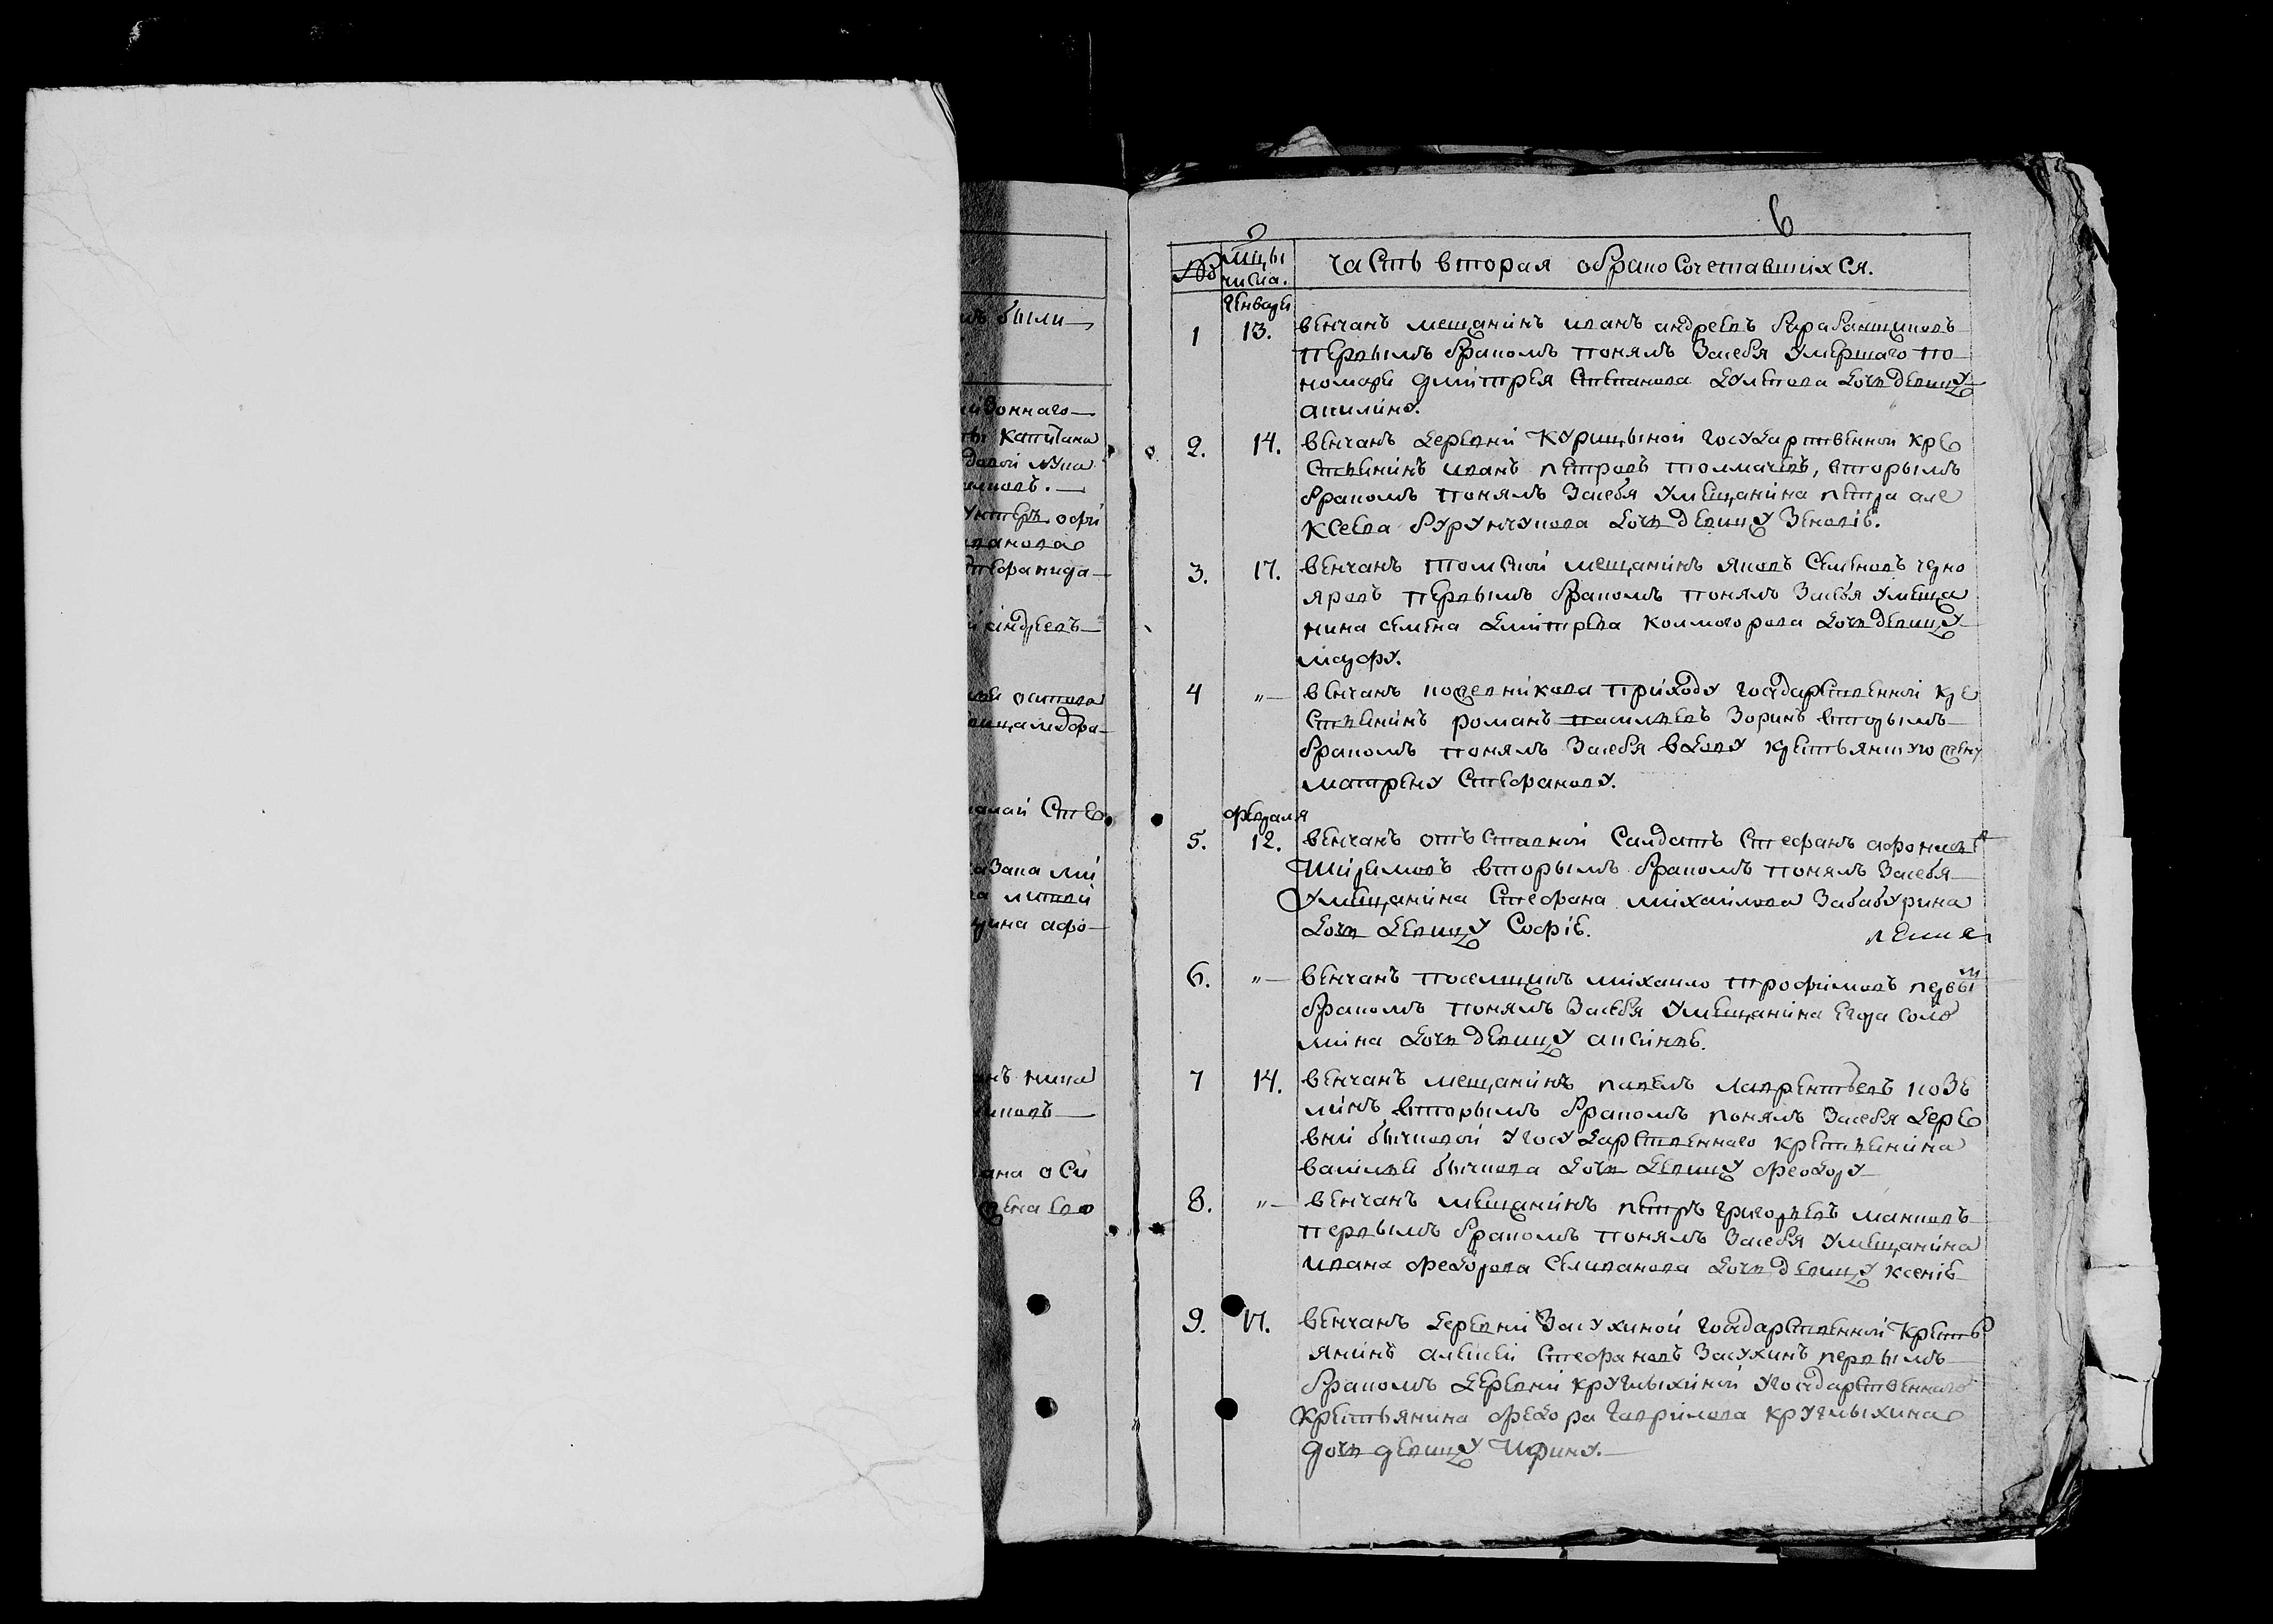 ъ были
йзоннаго
капитана
унтеръ офи
Андреевъ
6
№
мцы числа.
Часть вторая обракосочетавшихся.
Генваря
1 13. венчанъ мещанинъ иванъ андреевъ барабанщиковъ
первымъ бракомъ понялъ засебя умершаго по
номаря дмитрея степанова дочь девицу
акилину.
2. 14. венчанъ деревни Курицыной государственной кре
стьянинъ иванъ петровъ толмачевъ, вторымъ
бракомъ понялъ засебя умещанина петра але
ксеева бурунчукова дочь девицу зеновiю.
3. 17. венчанъ томской мещанинъ яковъ семеновъ черно
яровъ первымъ бракомъ понялъ засебя умеща
нина семена дмитрева колмогорова дочь девицу
мавру.
4 „— венчанъ приходу государственной кре
стьянинъ романъ васильевъ зоринъ вторымъ
бракомъ понялъ засебя вдову крестьянскую жену
матрену стефанову.
февраля
5. 12. венчанъ отъставной салдатъ стефанъ афонасьевъ
вторымъ бракомъ понялъ засебя
умещанина стефана михаилова забабурина
дочь девицу софiю.
6. „— венчанъ поселщикъ михаило трофимовъ первы
м
бракомъ понялъ засебя умещанина егора соло
мина дочь девицу аксинью.
7 14. венчанъ мещанинъ павелъ лаврентьевъ козе
минъ вторымъ бракомъ понялъ засебя дере
вни бычковой угосударственнаго крестьянина
василья бычкова дочь девицу феодору
8. „— венчанъ мещанинъ петръ григорьевъ манковъ
первымъ бракомъ понялъ засебя умещанина
ивана федорова селиванова дочь девицу ксенiю
9. 17. венчанъ деревни засухиной государственной кресть
янинъ алексей стефановъ засухинъ первымъ
бракомъ деревни круглыхиной угосударственнаго
крестьянина федора гаврилова круглыхина
дочь девицу Ирину.